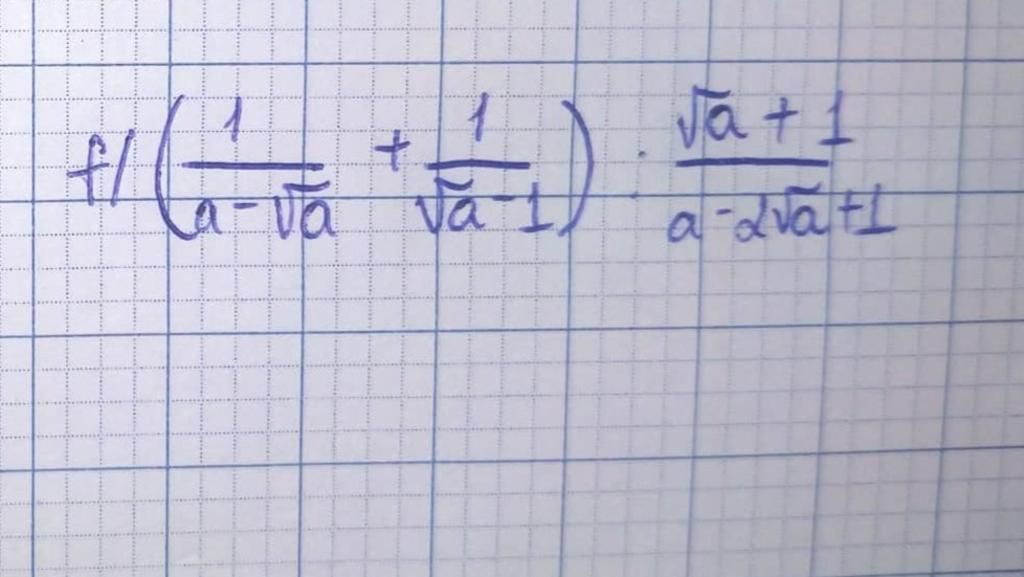 f/ (1/(a-√a) + 1/(√a-1)) : (√a+1)/(a-2√a+1)